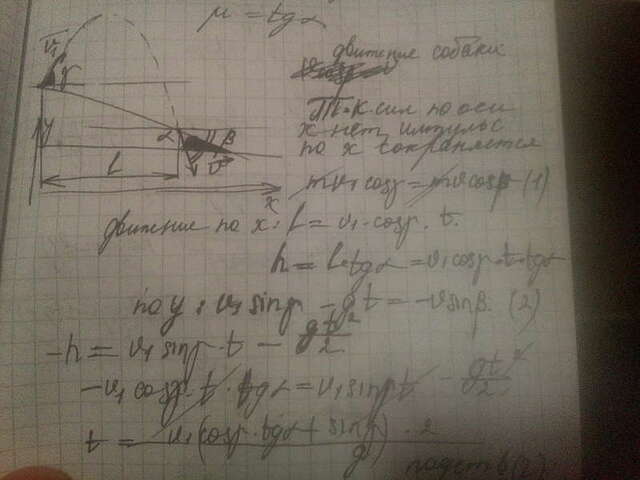 μ = tgα
движение собаки
Т.к сил по оси
x нет импульс
по x сохраняется
mv₁cosγ = mvcosβ (1)
движение по x: L = v₁·cosγ·t.
h = L·tgα = v₁cosγ·t·tgα
по y: v₁sinγ - gt = -vsinβ. (2)
-h = v₁sinγ·t - gt²/2
-v₁cosγ·t·tgα = v₁sinγt - gt²/2
t = v₁(cosγ·tgα + sinγ)·2/g
подст в (2)
v₁
γ
y
α
β
v
L
x